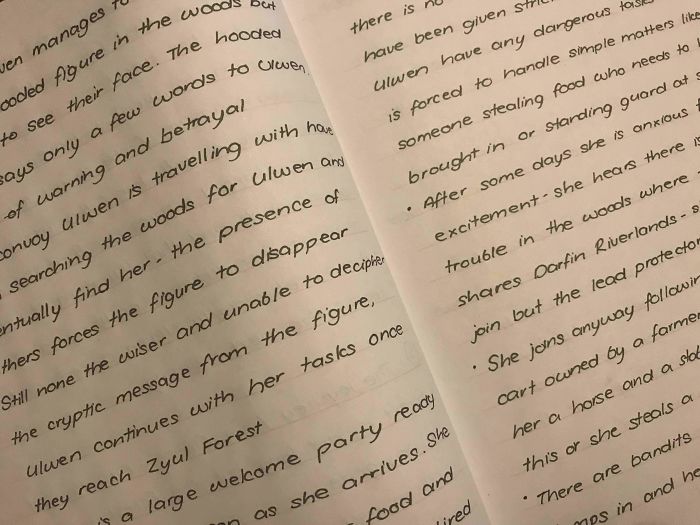 manages to
figure in the woods but
to see their face. The hooded
says only a few words to Ulwen.
of warning and betrayal
convoy Ulwen is travelling with have
searching the woods for Ulwen and
find her - the presence of
forces the figure to disappear
Still none the wiser and unable to decipher
the cryptic message from the figure,
Ulwen continues with her tasks once
they reach Zyul Forest
a large welcome party ready
as she arrives. She
food and
there is no
have been given
Ulwen have any dangerous tasks
is forced to handle simple matters like
someone stealing food who needs to
brought in or standing guard at
• After some days she is anxious
excitement - she hears there is
trouble in the woods where
shares Darfin Riverlands -
join but the lead protector
• She joins anyway
cart owned by a farmer
her a horse and a
this or she steals a
• There are bandits
in and